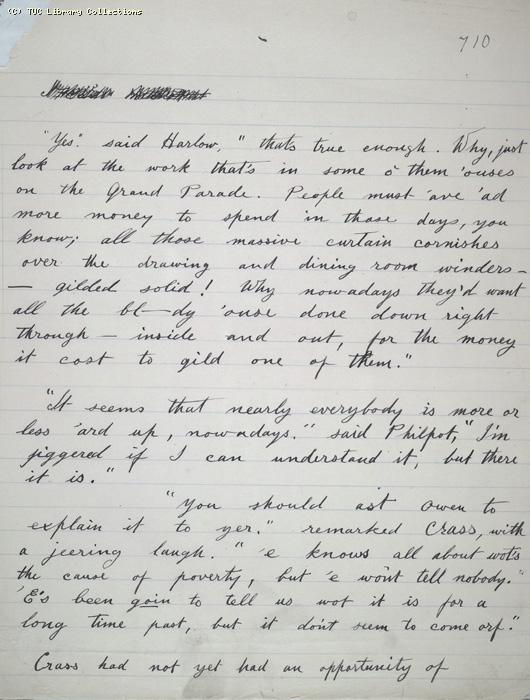 (C) TUC Library Collections
710
"Yes". said Harlow, "thats true enough. Why, just
look at the work that's in some o' them 'ouses
on the Grand Parade. People must 'ave 'ad
more money to spend in those days, you
know; all those massive curtain cornishes
over the drawing and dining room winders -
— gilded solid! Why nowadays they'd want
all the bl—dy 'ouse done down right
through — inside and out, for the money
it cost to gild one of them."
"It seems that nearly everybody is more or
less 'ard up, nowadays." said Philpot, "I'm
jiggered if I can understand it, but there
it is."
"You should ast Owen to
explain it to yer." remarked Crass, with
a jeering laugh. "'e knows all about wot's
the cause of poverty, but 'e won't tell nobody."
'E's been goin to tell us wot it is for a
long time past, but it don't seem to come orf."
Crass had not yet had an opportunity of